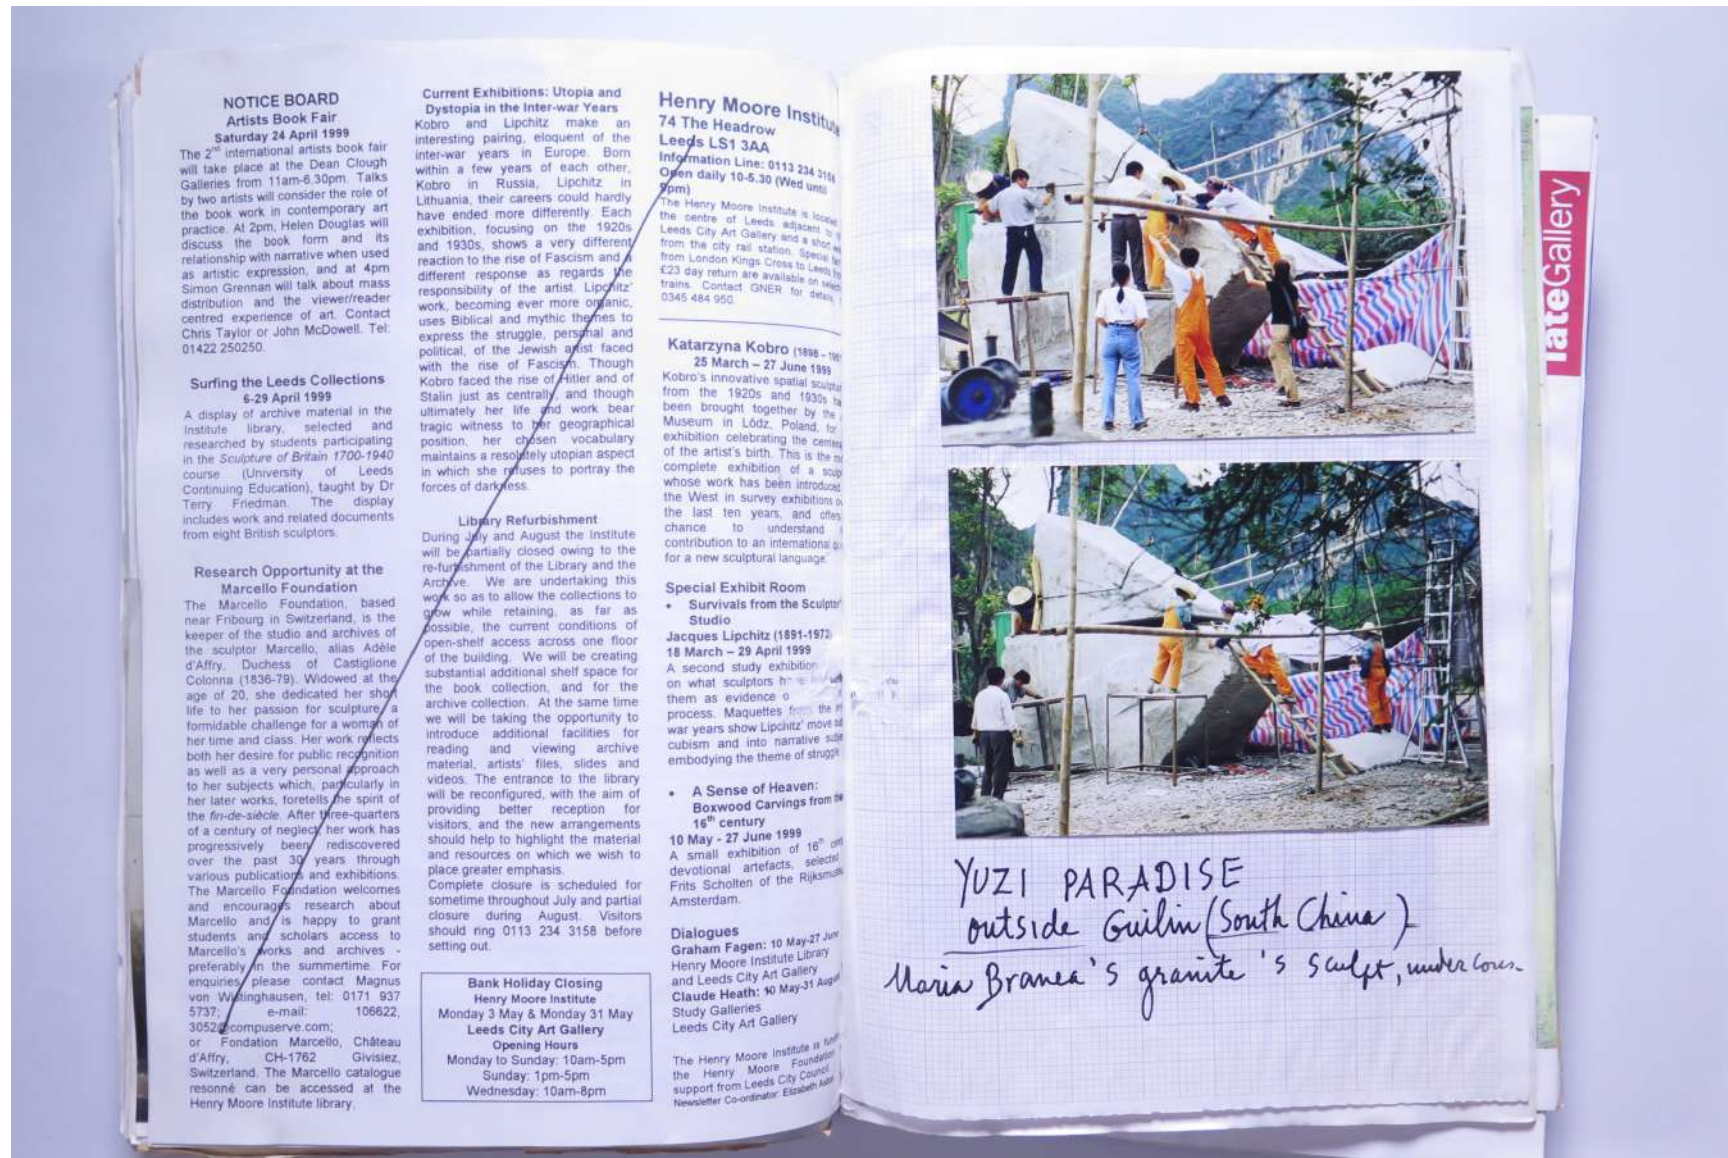 NOTICE BOARD
Artists Book Fair
Saturday 24 April 1999
The 2nd international artists book fair
will take place at the Dean Clough
Galleries from 11am-6.30pm. Talks
by two artists will consider the role of
the book work in contemporary art
practice. At 2pm, Helen Douglas will
discuss the book form and its
relationship with narrative when used
as artistic expression, and at 4pm
Simon Grennan will talk about mass
distribution and the viewer/reader
centred experience of art. Contact
Chris Taylor or John McDowell. Tel:
01422 250250.
Surfing the Leeds Collections
6-29 April 1999
A display of archive material in the
Institute library, selected and
researched by students participating
in the Sculpture of Britain 1700-1940
course (University of Leeds
Continuing Education), taught by Dr
Terry Friedman. The display
includes work and related documents
from eight British sculptors.
Research Opportunity at the
Marcello Foundation
The Marcello Foundation, based
near Fribourg in Switzerland, is the
keeper of the studio and archives of
the sculptor Marcello, alias Adèle
d'Affry, Duchess of Castiglione
Colonna (1836-79). Widowed at the
age of 20, she dedicated her short
life to her passion for sculpture, a
formidable challenge for a woman of
her time and class. Her work reflects
both her desire for public recognition
as well as a very personal approach
to her subjects which, particularly in
her later works, foretells the spirit of
the fin-de-siècle. After three-quarters
of a century of neglect, her work has
progressively been rediscovered
over the past 30 years through
various publications and exhibitions.
The Marcello Foundation welcomes
and encourages research about
Marcello and is happy to grant
students and scholars access to
Marcello's works and archives -
preferably in the summertime. For
enquiries please contact Magnus
von Wistinghausen, tel: 0171 937
5737; e-mail: 106622,
3052@compuserve.com;
or Fondation Marcello, Château
d'Affry, CH-1762 Givisiez,
Switzerland. The Marcello catalogue
resonné can be accessed at the
Henry Moore Institute library.
Current Exhibitions: Utopia and
Dystopia in the Inter-war Years
Kobro and Lipchitz make an
interesting pairing, eloquent of the
inter-war years in Europe. Born
within a few years of each other,
Kobro in Russia, Lipchitz in
Lithuania, their careers could hardly
have ended more differently. Each
exhibition, focusing on the 1920s
and 1930s, shows a very different
reaction to the rise of Fascism and a
different response as regards the
responsibility of the artist. Lipchitz'
work, becoming ever more organic,
uses Biblical and mythic themes to
express the struggle, personal and
political, of the Jewish artist faced
with the rise of Fascism. Though
Kobro faced the rise of Hitler and of
Stalin just as centrally, and though
ultimately her life and work bear
tragic witness to her geographical
position, her chosen vocabulary
maintains a resolutely utopian aspect
in which she refuses to portray the
forces of darkness.
Library Refurbishment
During July and August the Institute
will be partially closed owing to the
re-furbishment of the Library and the
Archive. We are undertaking this
work so as to allow the collections to
grow while retaining, as far as
possible, the current conditions of
open-shelf access across one floor
of the building. We will be creating
substantial additional shelf space for
the book collection, and for the
archive collection. At the same time
we will be taking the opportunity to
introduce additional facilities for
reading and viewing archive
material, artists' files, slides and
videos. The entrance to the library
will be reconfigured, with the aim of
providing better reception for
visitors, and the new arrangements
should help to highlight the material
and resources on which we wish to
place greater emphasis.
Complete closure is scheduled for
sometime throughout July and partial
closure during August. Visitors
should ring 0113 234 3158 before
setting out.
Bank Holiday Closing
Henry Moore Institute
Monday 3 May & Monday 31 May
Leeds City Art Gallery
Opening Hours
Monday to Sunday: 10am-5pm
Sunday: 1pm-5pm
Wednesday: 10am-8pm
Henry Moore Institute
74 The Headrow
Leeds LS1 3AA
Information Line: 0113 234 3158
Open daily 10-5.30 (Wed until
9pm)
The Henry Moore Institute is located
the centre of Leeds adjacent to
Leeds City Art Gallery and a short
from the city rail station. Special
from London Kings Cross to Leeds
£23 day return are available on
trains. Contact GNER for details,
0345 484 950.
Katarzyna Kobro (1898 –
25 March – 27 June 1999
Kobro's innovative spatial
from the 1920s and 1930s
been brought together by the
Museum in Lódz, Poland, for
exhibition celebrating the
of the artist's birth. This is the
complete exhibition of a
whose work has been introduced
the West in survey exhibitions
the last ten years, and
chance to understand
contribution to an international
for a new sculptural language.
Special Exhibit Room
• Survivals from the Sculptor'
Studio
Jacques Lipchitz (1891-1972)
18 March – 29 April 1999
A second study exhibition
on what sculptors
them as evidence
process. Maquettes from the
war years show Lipchitz' move
cubism and into narrative
embodying the theme of struggle.
• A Sense of Heaven:
Boxwood Carvings from the
16th century
10 May - 27 June 1999
A small exhibition of 16th
devotional artefacts, selected
Frits Scholten of the
Amsterdam.
Dialogues
Graham Fagen: 10 May-27 June
Henry Moore Institute Library
and Leeds City Art Gallery
Claude Heath: 10 May-31 August
Study Galleries
Leeds City Art Gallery
The Henry Moore Institute is
the Henry Moore Foundation
support from Leeds City Council.
Newsletter Co-ordinator: Elizabeth
YUZI PARADISE
outside Guilin (South China)
Maria Branea's granite's sculpt, under cons-
tateGallery